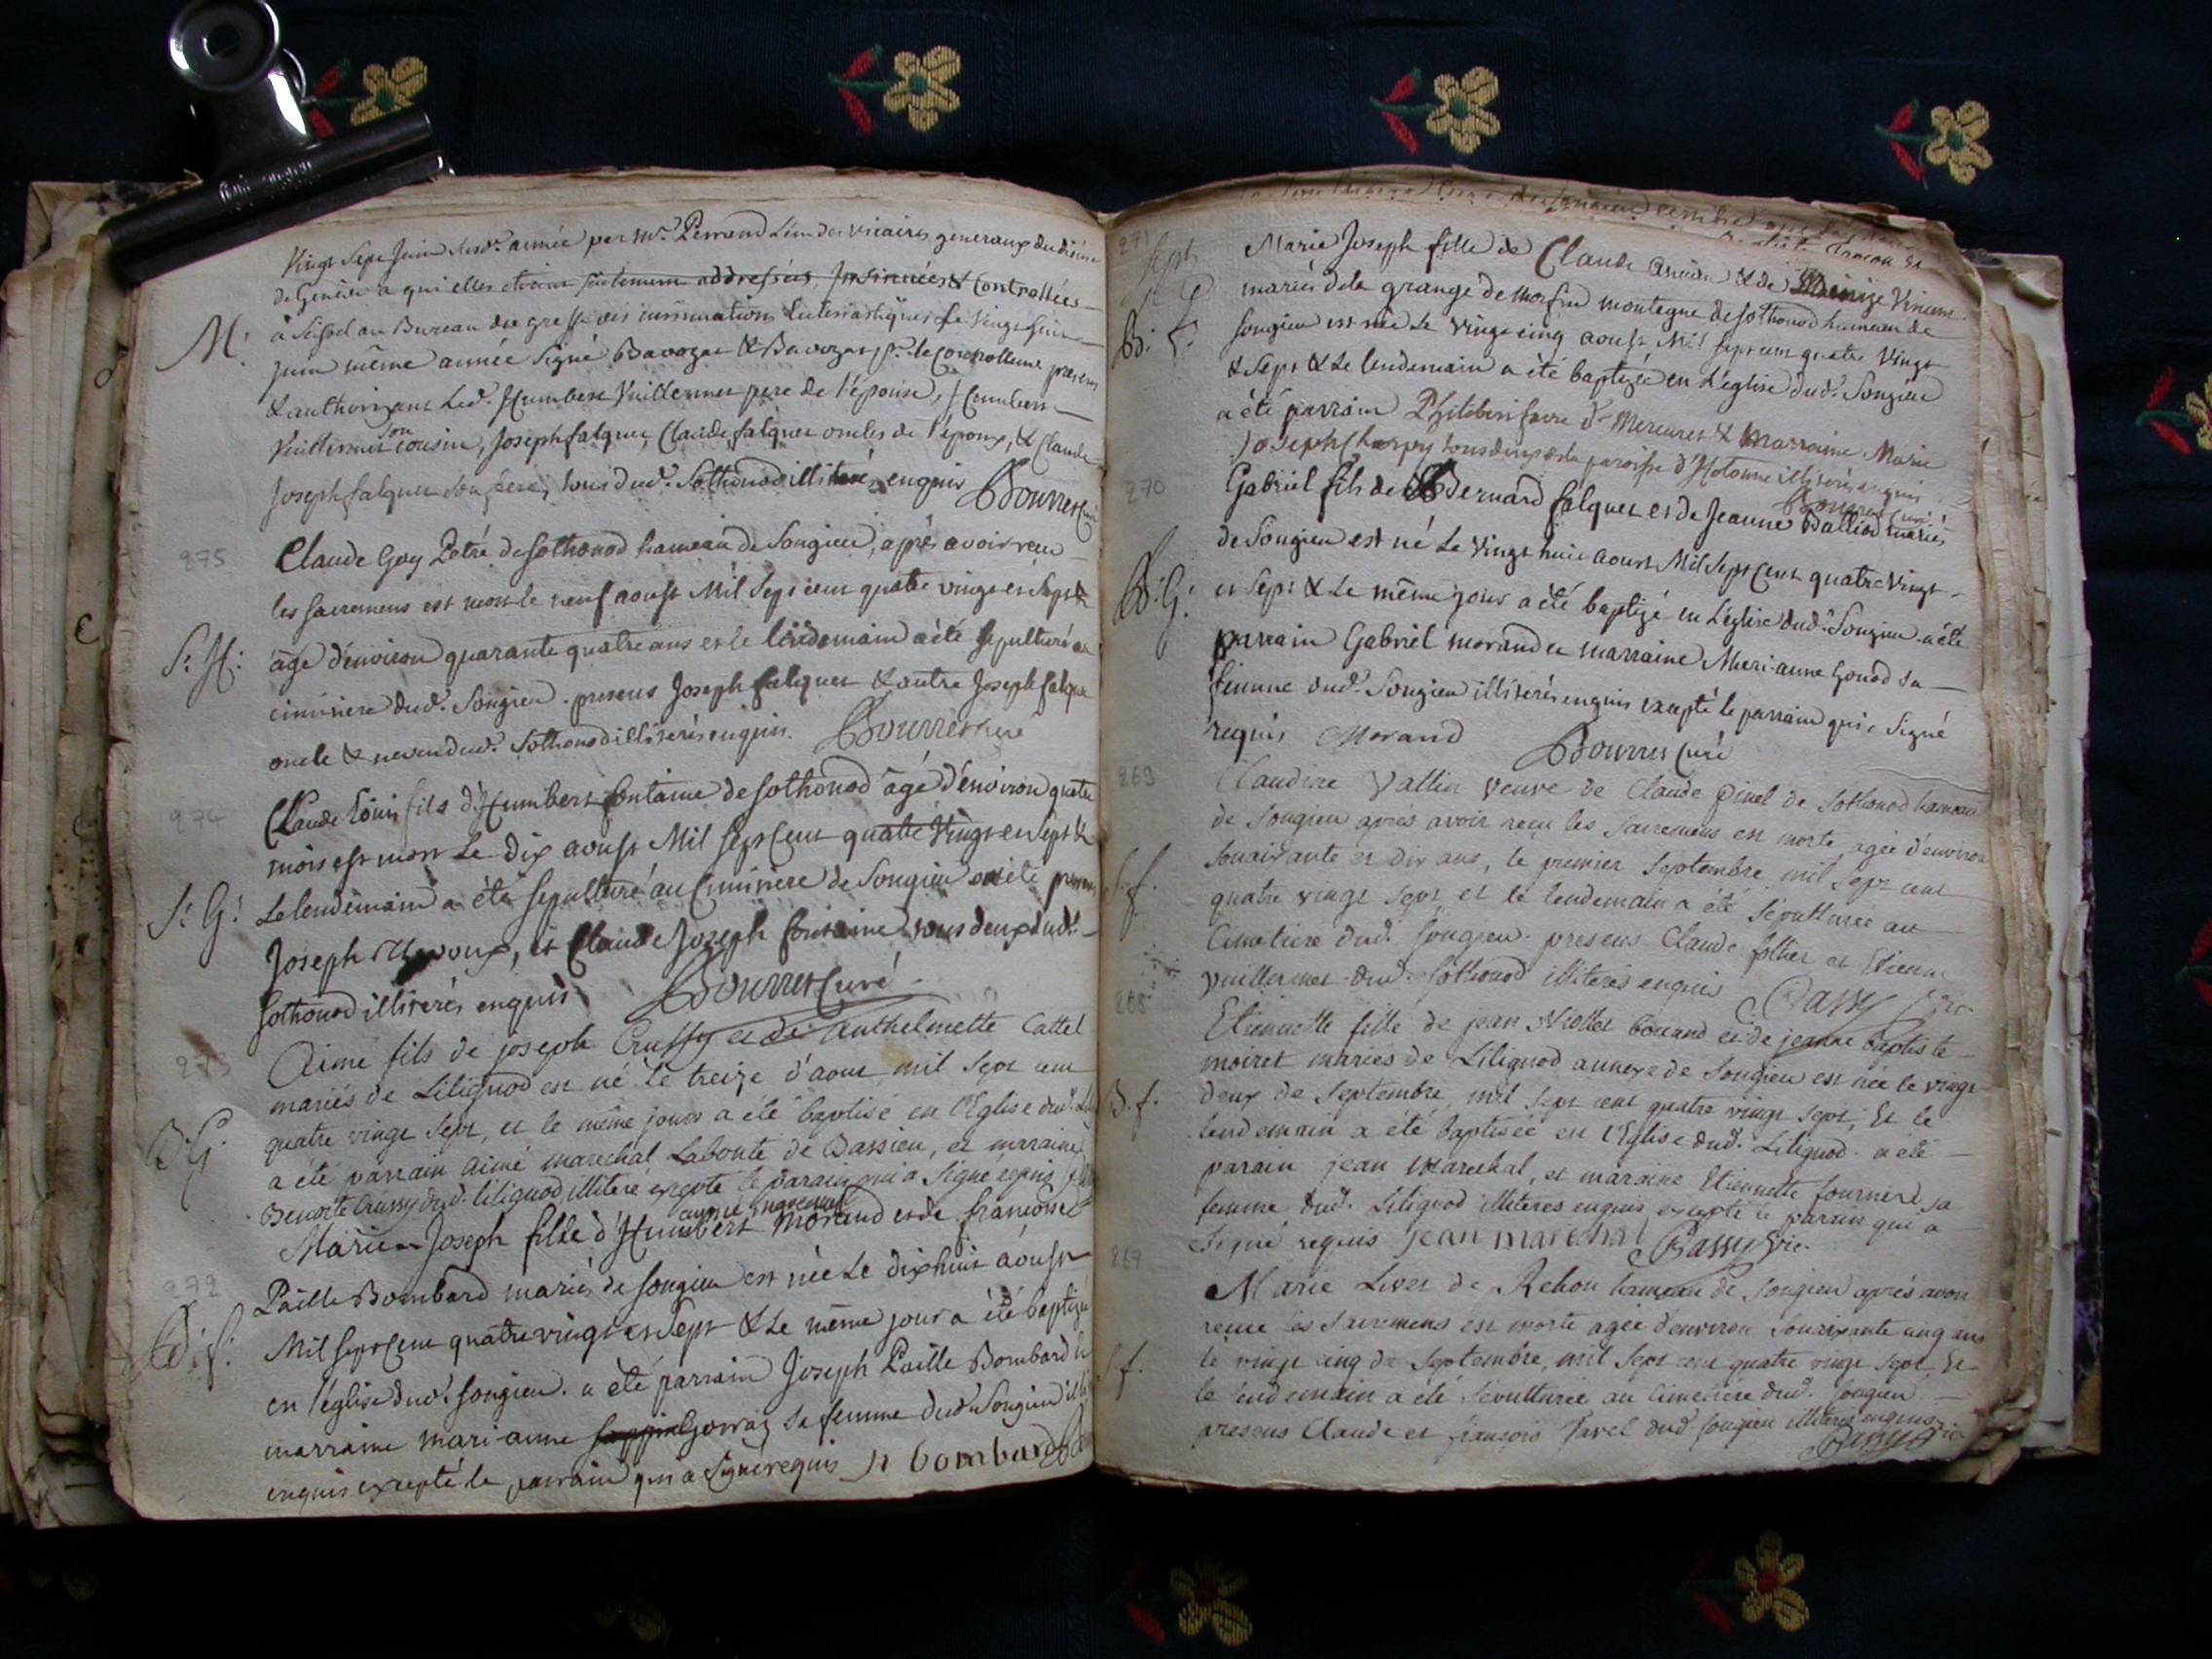 Vingt Sept Juin susd. année par Mr. Perrand l'un des vicaires generaux du diocèse
de Genève a qui elles etoient addressées, Insinuées & Controllées
à Seissel au Bureau du greffe des insinuations Ecclesiastiques le Vingt huit
M:
juin même année Signé Bavozat & Bavozat pr. le Controlleur presens
& authorizant led. Humbert Vuillermet pere de l'épouse, Humbert
Vuillermet son cousin, Joseph falquet, Claude falquet oncles de l'époux, & Claude
Joseph falquet son frere, tous dud. Sothonod illiterés enquis Bourret Curé
275
Claude Goy Petré de Sothonod hameau de Songieu, après avoir reçu
les sacremens est mort le neuf aoust Mil Sept cent quatre vingt et Sept &
S: H:
âgé d'environ quarante quatre ans et le lendemain a été sepulturé au
cimitiere dud. Songieu. presens Joseph falquet & autre Joseph falquet
oncle & neveu dud. Sothonod illiterés enquis. Bourret Curé
274
Claude Louis fils d'Humbert fontaine de Sothonod âgé d'environ quatre
mois est mort Le Dix aoust Mil Sept Cent quatre Vingt et Sept &
S: G:
Le lendemain a été sepulturé au Cimitiere de Songieu ont été presens
Joseph, et Claude Joseph fontaine tous deux dud.
Sothonod illiterés enquis Bourret Curé
273
Aimé fils de joseph Crussy et de anthelmette Cattel
mariés de Lilignod est né le treize d'aout mil sept cent
quatre vingt sept, et le même jour a été baptisé en l'Eglise dud.
B. G.
a été parrain aimé marechal Labonte de Bassieu, et marraine
Benoite Crussy dud. lilignod illiteré excepté le parain qui a signé requis
aimé marechal
272
Marie Joseph fille d'Humbert Morand et de francoise
Paille Bombard mariés de Songieu est née Le dixhuit aoust
B: f:
Mil Sept Cent quatre vingt et Sept & Le même jour a été baptizée
en l'église dud. Songieu. a été parrain Joseph Paille Bombard
marraine mari-anne Gonraz sa femme dud. Songieu
enquis excepté le parrain qui a Signé requis J bombard
271
Marie Joseph fille de Claude & de Vincent
mariés de la grange de Morfin montagne de Sothonod hameau de
B: f:
Songieu est née Le Vingt cinq aoust Mil Sept cent quatre Vingt
& Sept & Le lendemain a été baptizée en L'église dud. Songieu
a été parrain Philibert favre d. Mereuret & Marraine Marie
Joseph Charpy tous deux de la paroisse d'Hotonne illiterés enquis
Bourret Curé
270
Gabriel fils de Bernard falquet et de Jeanne Balliod mariés
de Songieu est né Le Vingt huit aoust Mil Sept Cent quatre Vingt
B: G:
et Sept & Le même jour a été baptizé en L'église dud. Songieu a été
parrain Gabriel Morand et marraine Mari-anne Gonod sa
femme dud. Songieu illiterés enquis excepté le parrain qui a Signé
requis Morand Bourret Curé
269
Claudine Vallin Veuve de Claude pinel de Sothonod hameau
de Songieu après avoir reçu les sacremens est morte agée d'environ
soaixante et dix ans, le premier Septembre mil sept cent
S. f.
quatre vingt sept et le lendemain a été sepulturée au
Cimetiere dud. Songieu. presens Claude falket et Etienne
vuillermet dud. Sothonod illiterés enquis Bassy Vic.
268
Etiennette fille de jean Mollet bouand et de jeanne baptiste
moiret mariés de Lilignod annexe de Songieu est née le vingt
B. f.
deux de Septembre, mil sept cent quatre vingt sept, Et le
lendemain a été baptisée en l'Eglise dud. Lilignod. a été
parain jean Marechal, et maraine Etiennette fournier sa
femme dud. Lilignod illiteres enquis excepté le parain qui a
signé requis jean marechal Bassy Vic.
267
Marie Livet de Rehou hameau de Songieu après avoir
recue les sacremens est morte agée d'environ soaixante cinq ans
S. f.
le vingt cinq de Septembre, mil sept cent quatre vingt sept, Et
le lendemain a été sepulturée au cimetiere dud. Songieu
presens Claude et françois Pavel dud. Songieu illiteres enquis
Bassy Vic.